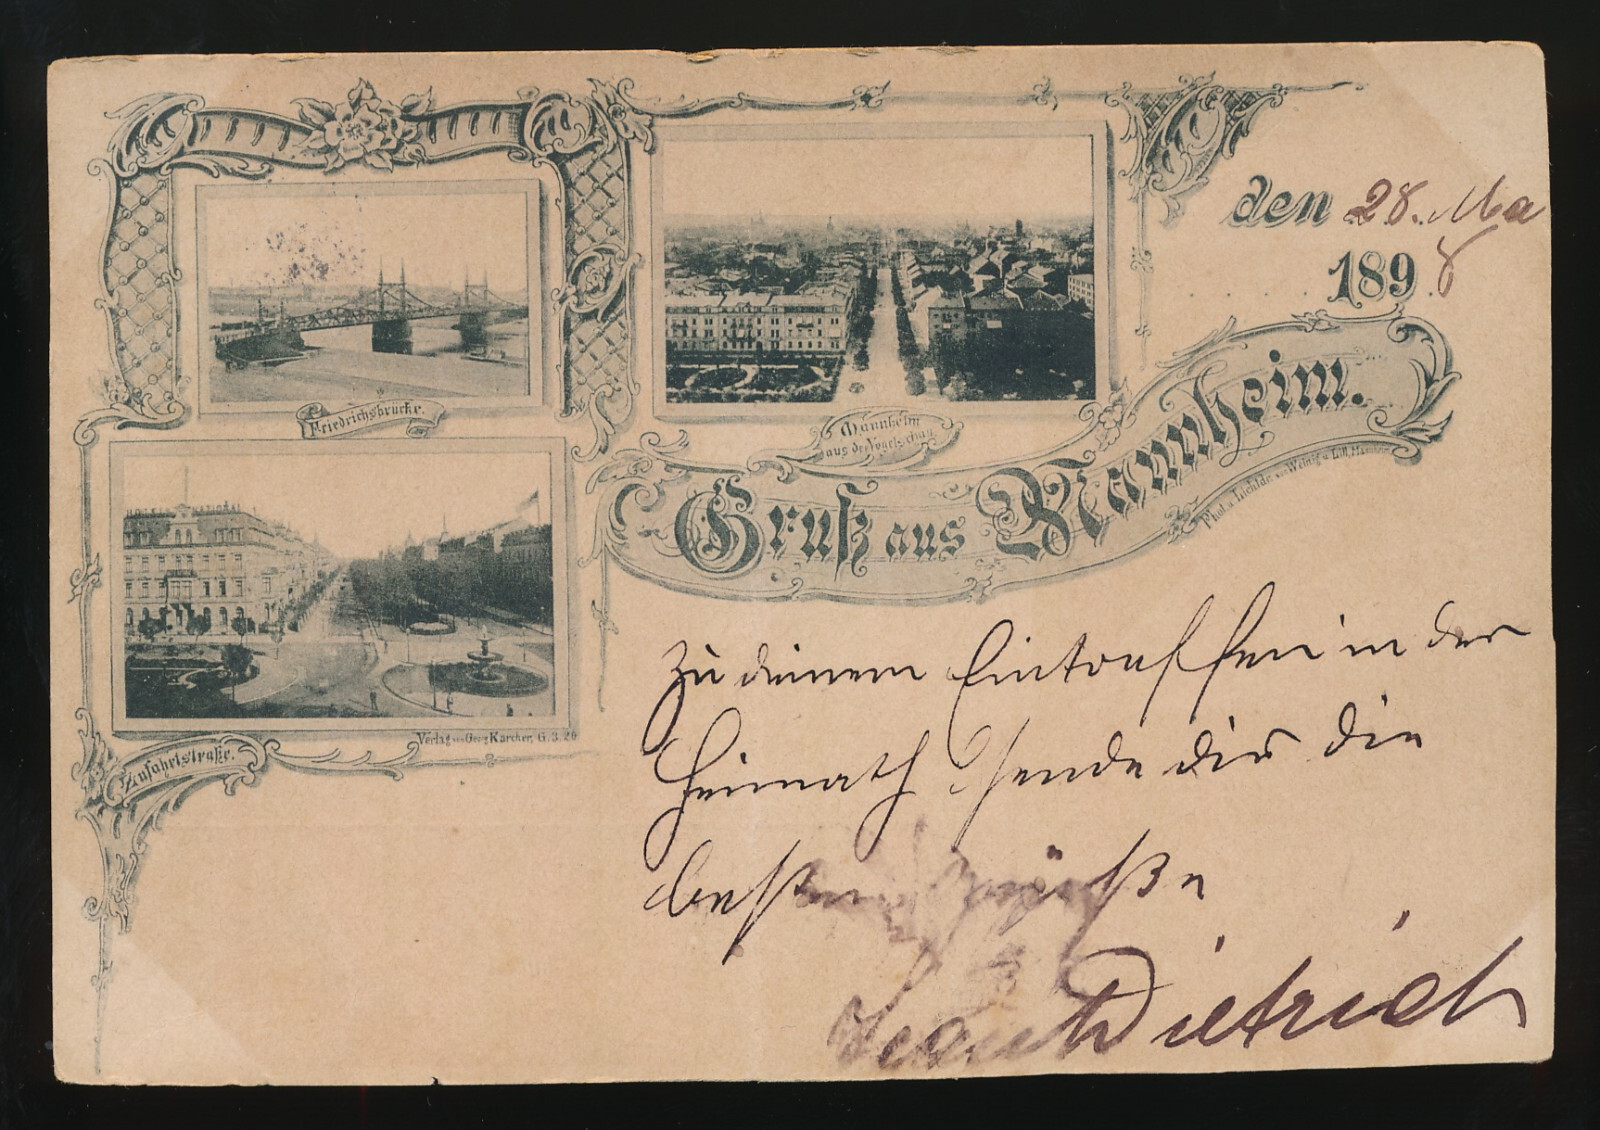 den 28. Ma
1898
Friedrichsbrücke.
Mannheim
aus der Vogelschau
Gruß aus Mannheim.
Phot. u. Lichtdr. von Weinig u. Lill, Mannheim
Verlag von Georg Karcher, G. 3. 20
Zufahrtstraße.
Zu deinem Eintreffen in der
Heimath sende dir die
besten Grüße
Dietrich